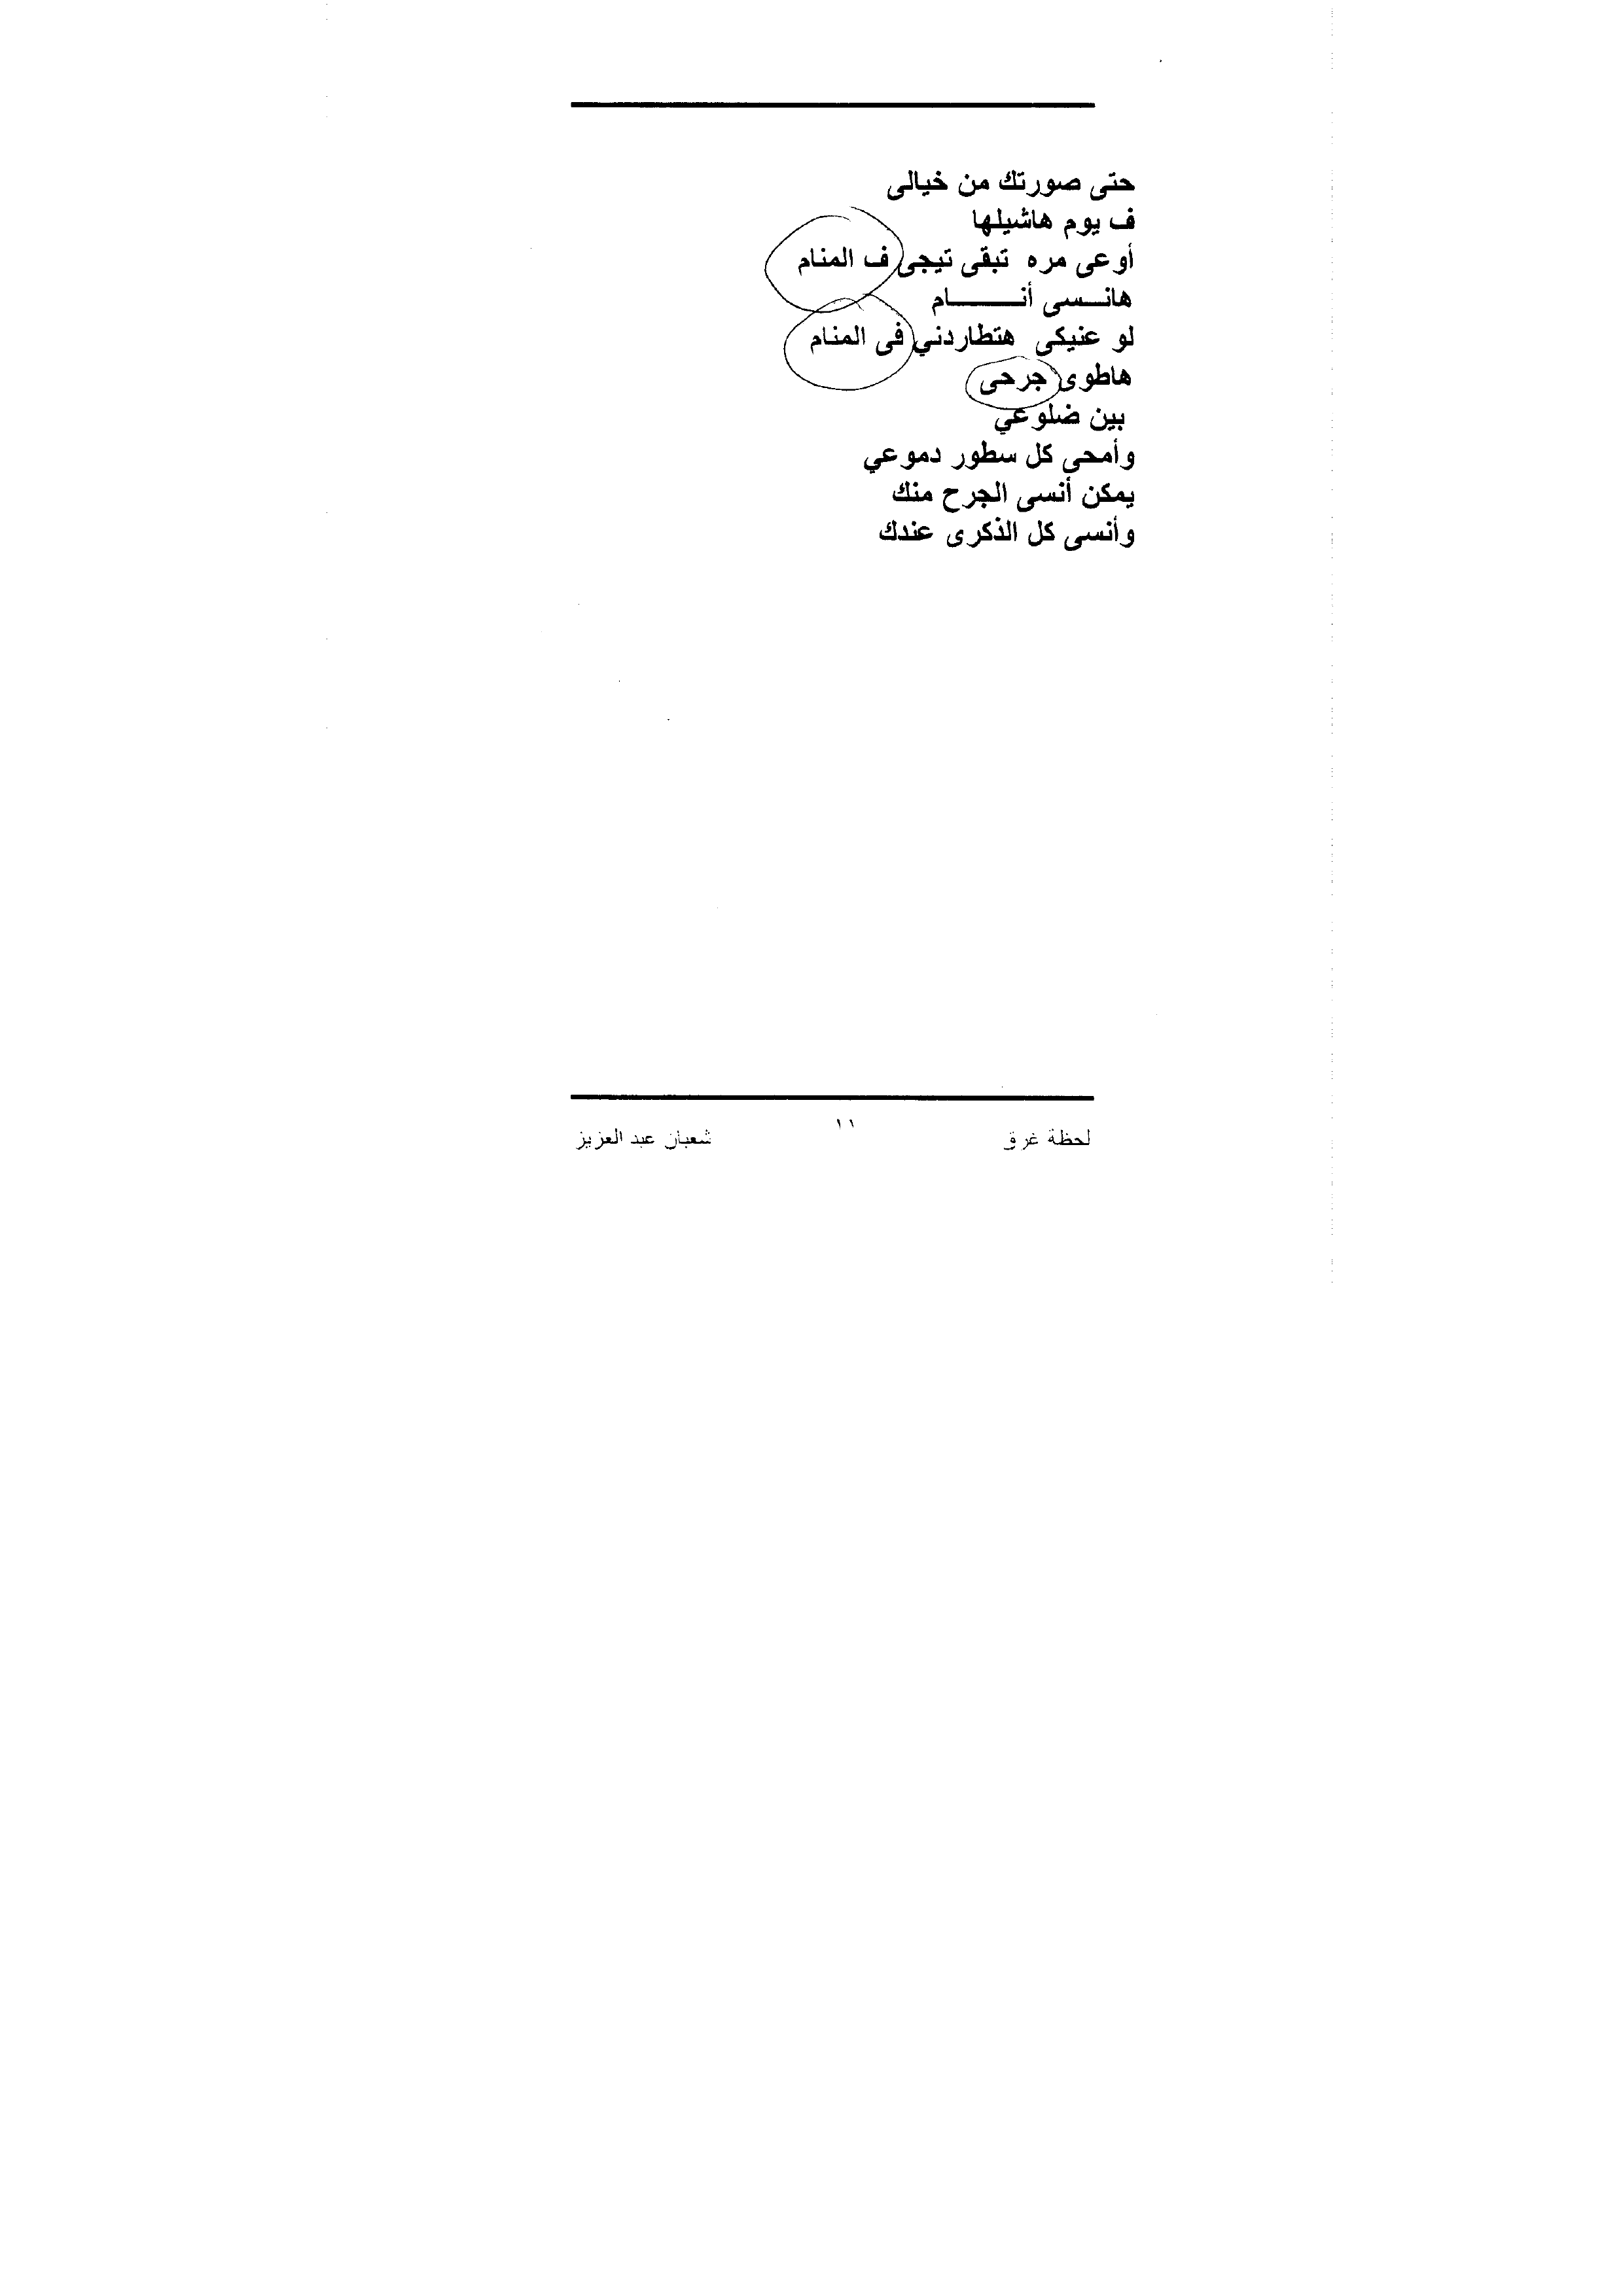 حتى صورتك من خيالى
ف يوم هاشيلها
أوعى مره تبقى تيجى ف المنام
هانـــسى أنـــــــــام
لو عنيكى هتطاردني فى المنام
هاطوى جرحى
بين ضلوعي
وأمحى كل سطور دموعي
يمكن أنسى الجرح منك
وأنسى كل الذكرى عندك
لحظة غرق ١١ شعبان عبد العزيز